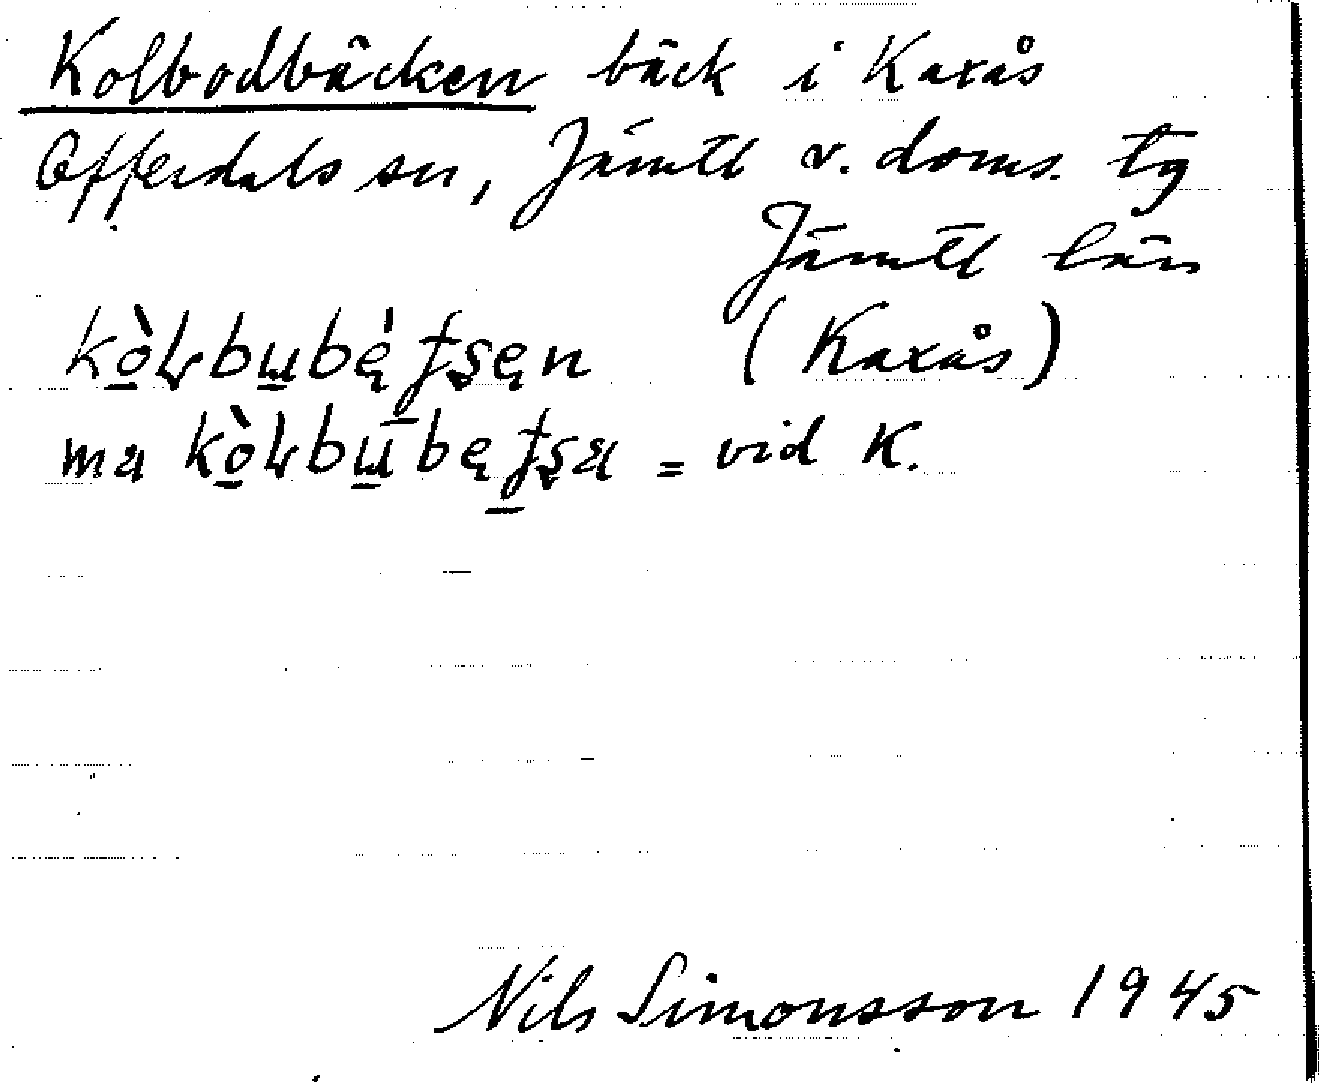 Kolbodbäcken bäck i Kaxås
Offerdals sn, Jämtl v. doms. tg
Jämtl län
kò̠ɫbu̠bę̀ʈʂęn (Kaxås)
ma kò̠ɫbū̠bęʈʂa = vid K.
Nils Simonsson 1945